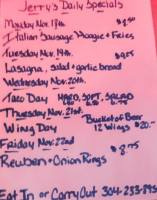 Jerry's Daily Specials
Monday Nov. 18th. $8.50
Italian Sausage Hoagie + Fries
Tuesday Nov. 19th. $9.25
Lasagna, salad + garlic bread
Wednesday Nov. 20th.
Taco Day HARD, SOFT, SALAD
Thursday Nov. 21st. Bucket of Beer
Wing Day 12 Wings $20.-
Friday Nov. 22nd $8.75
Reuben + Onion Rings
Eat In or Carry Out 304-233-